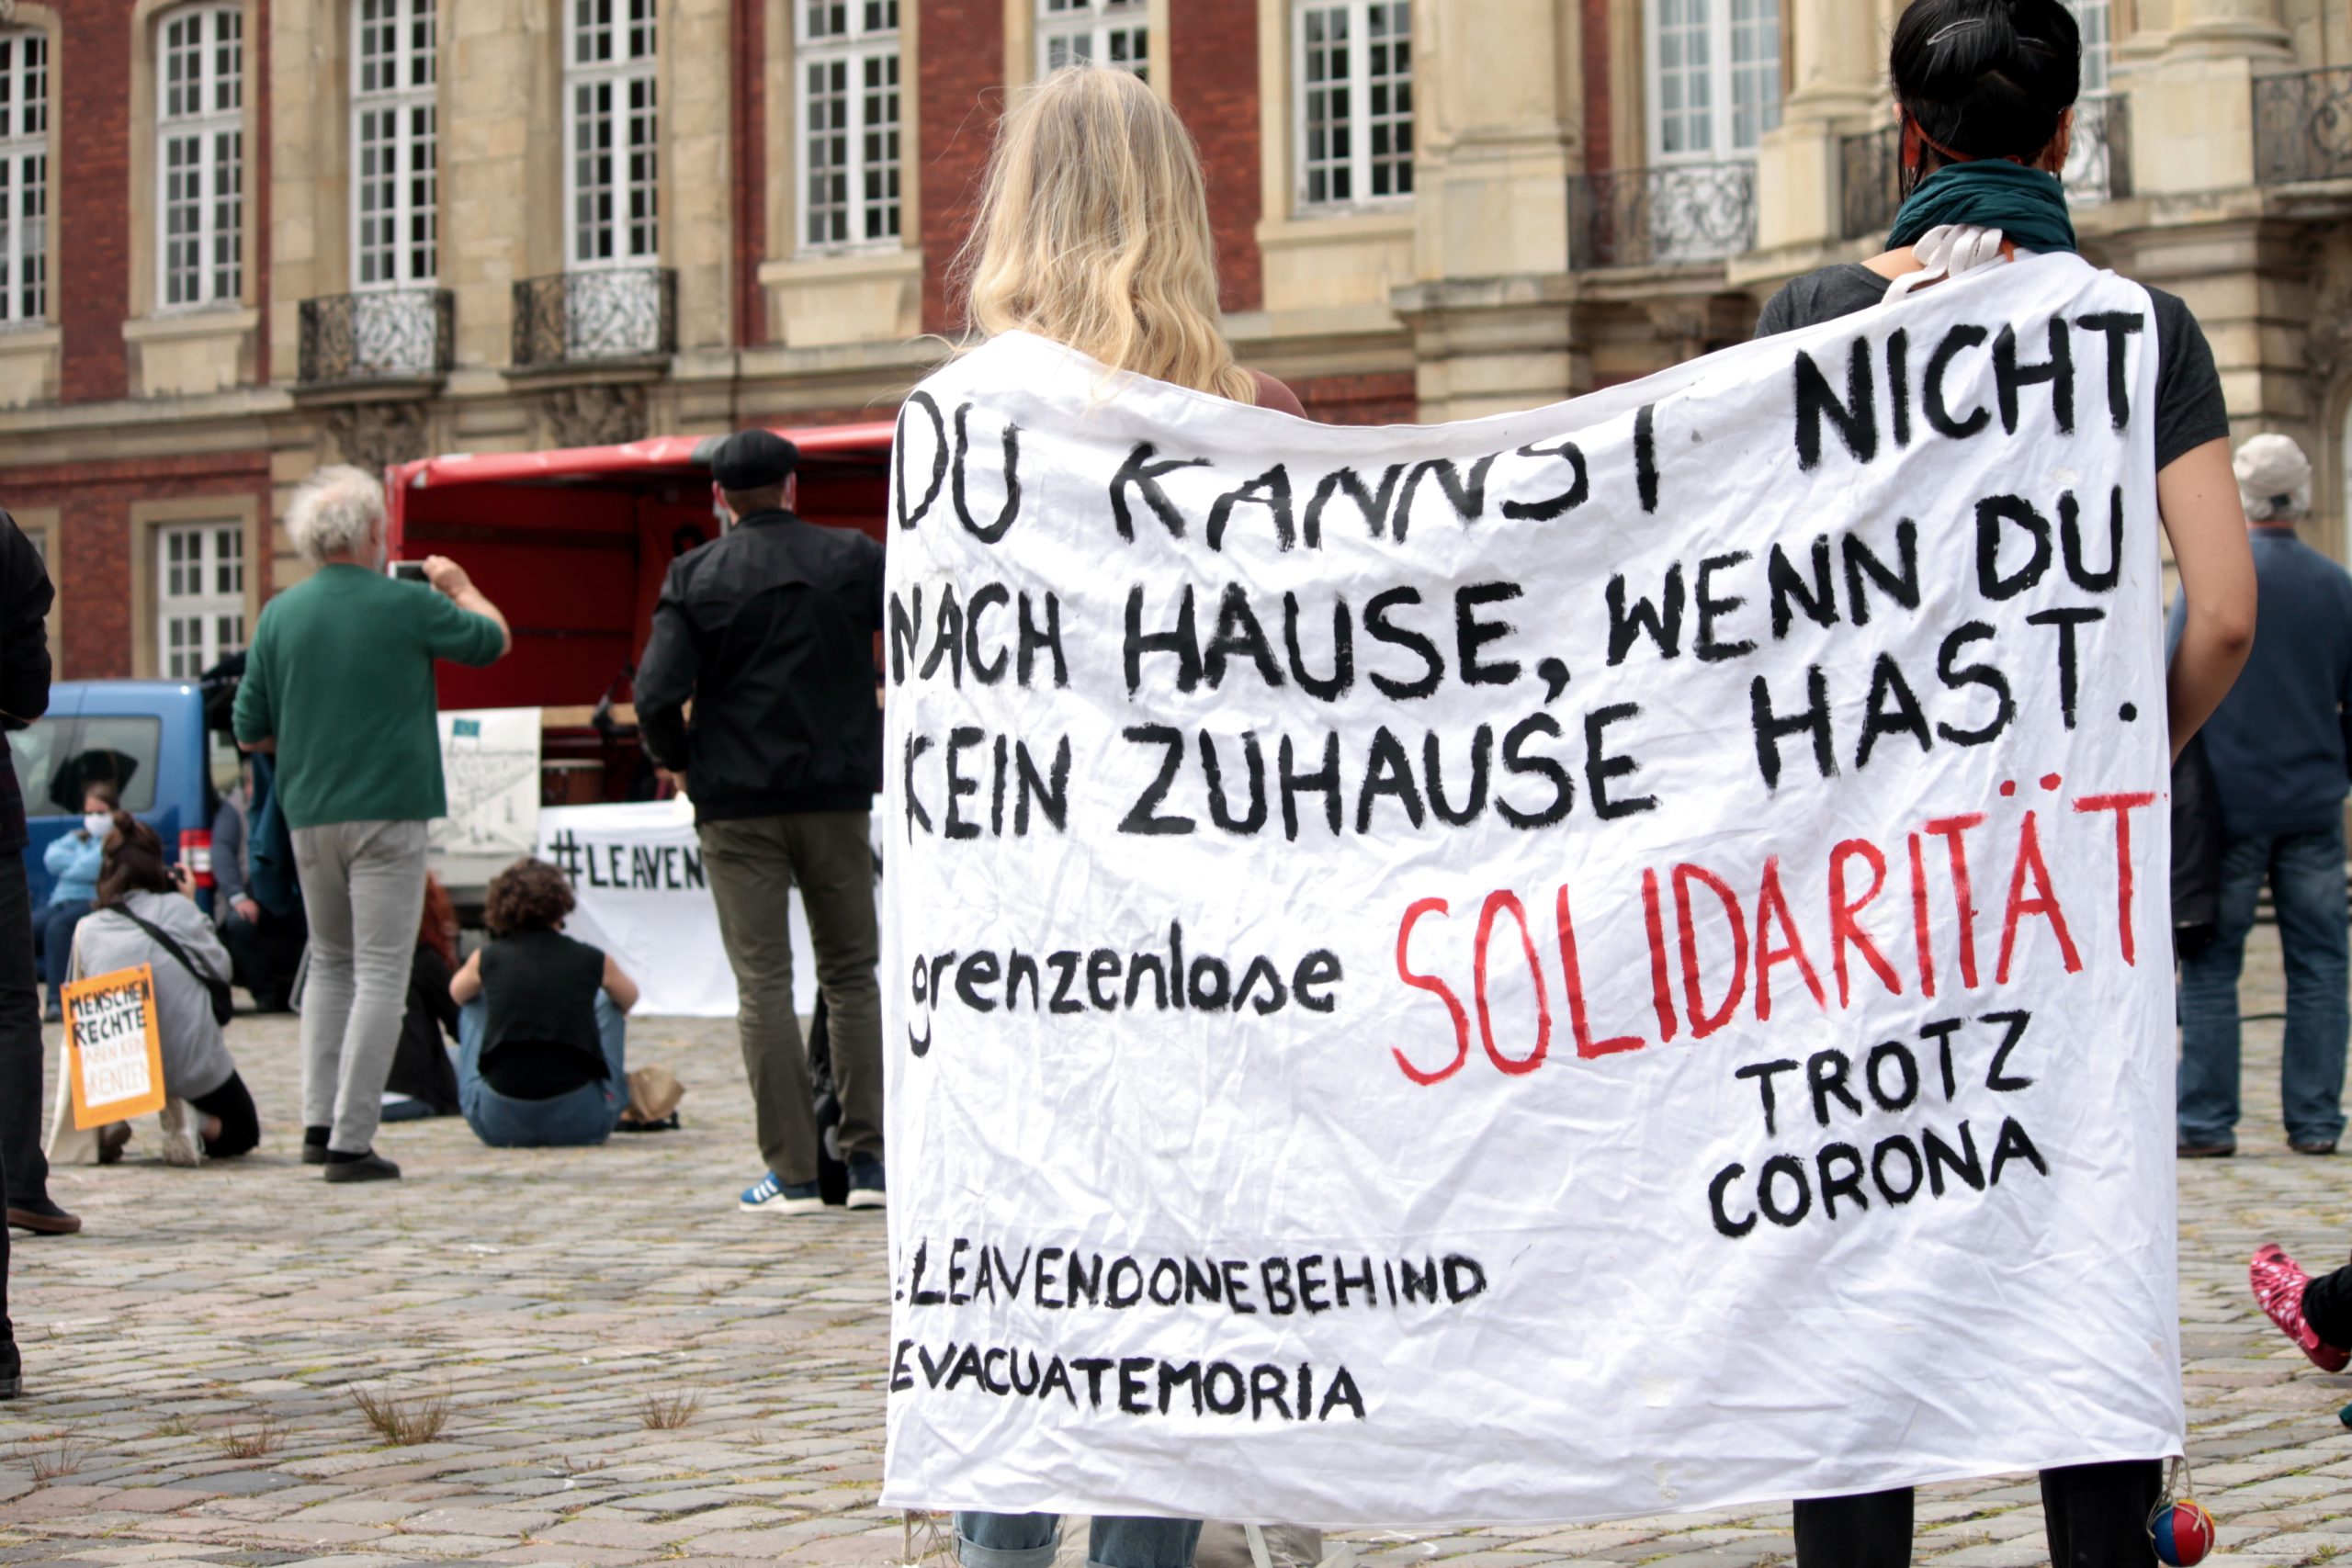 DU KANNST NICHT
NACH HAUSE, WENN DU
KEIN ZUHAUSE HAST.
grenzenlose SOLIDARITÄT
TROTZ
CORONA
#LEAVENOONEBEHIND
EVACUATEMORIA
#LEAVEN
MENSCHEN
RECHTE